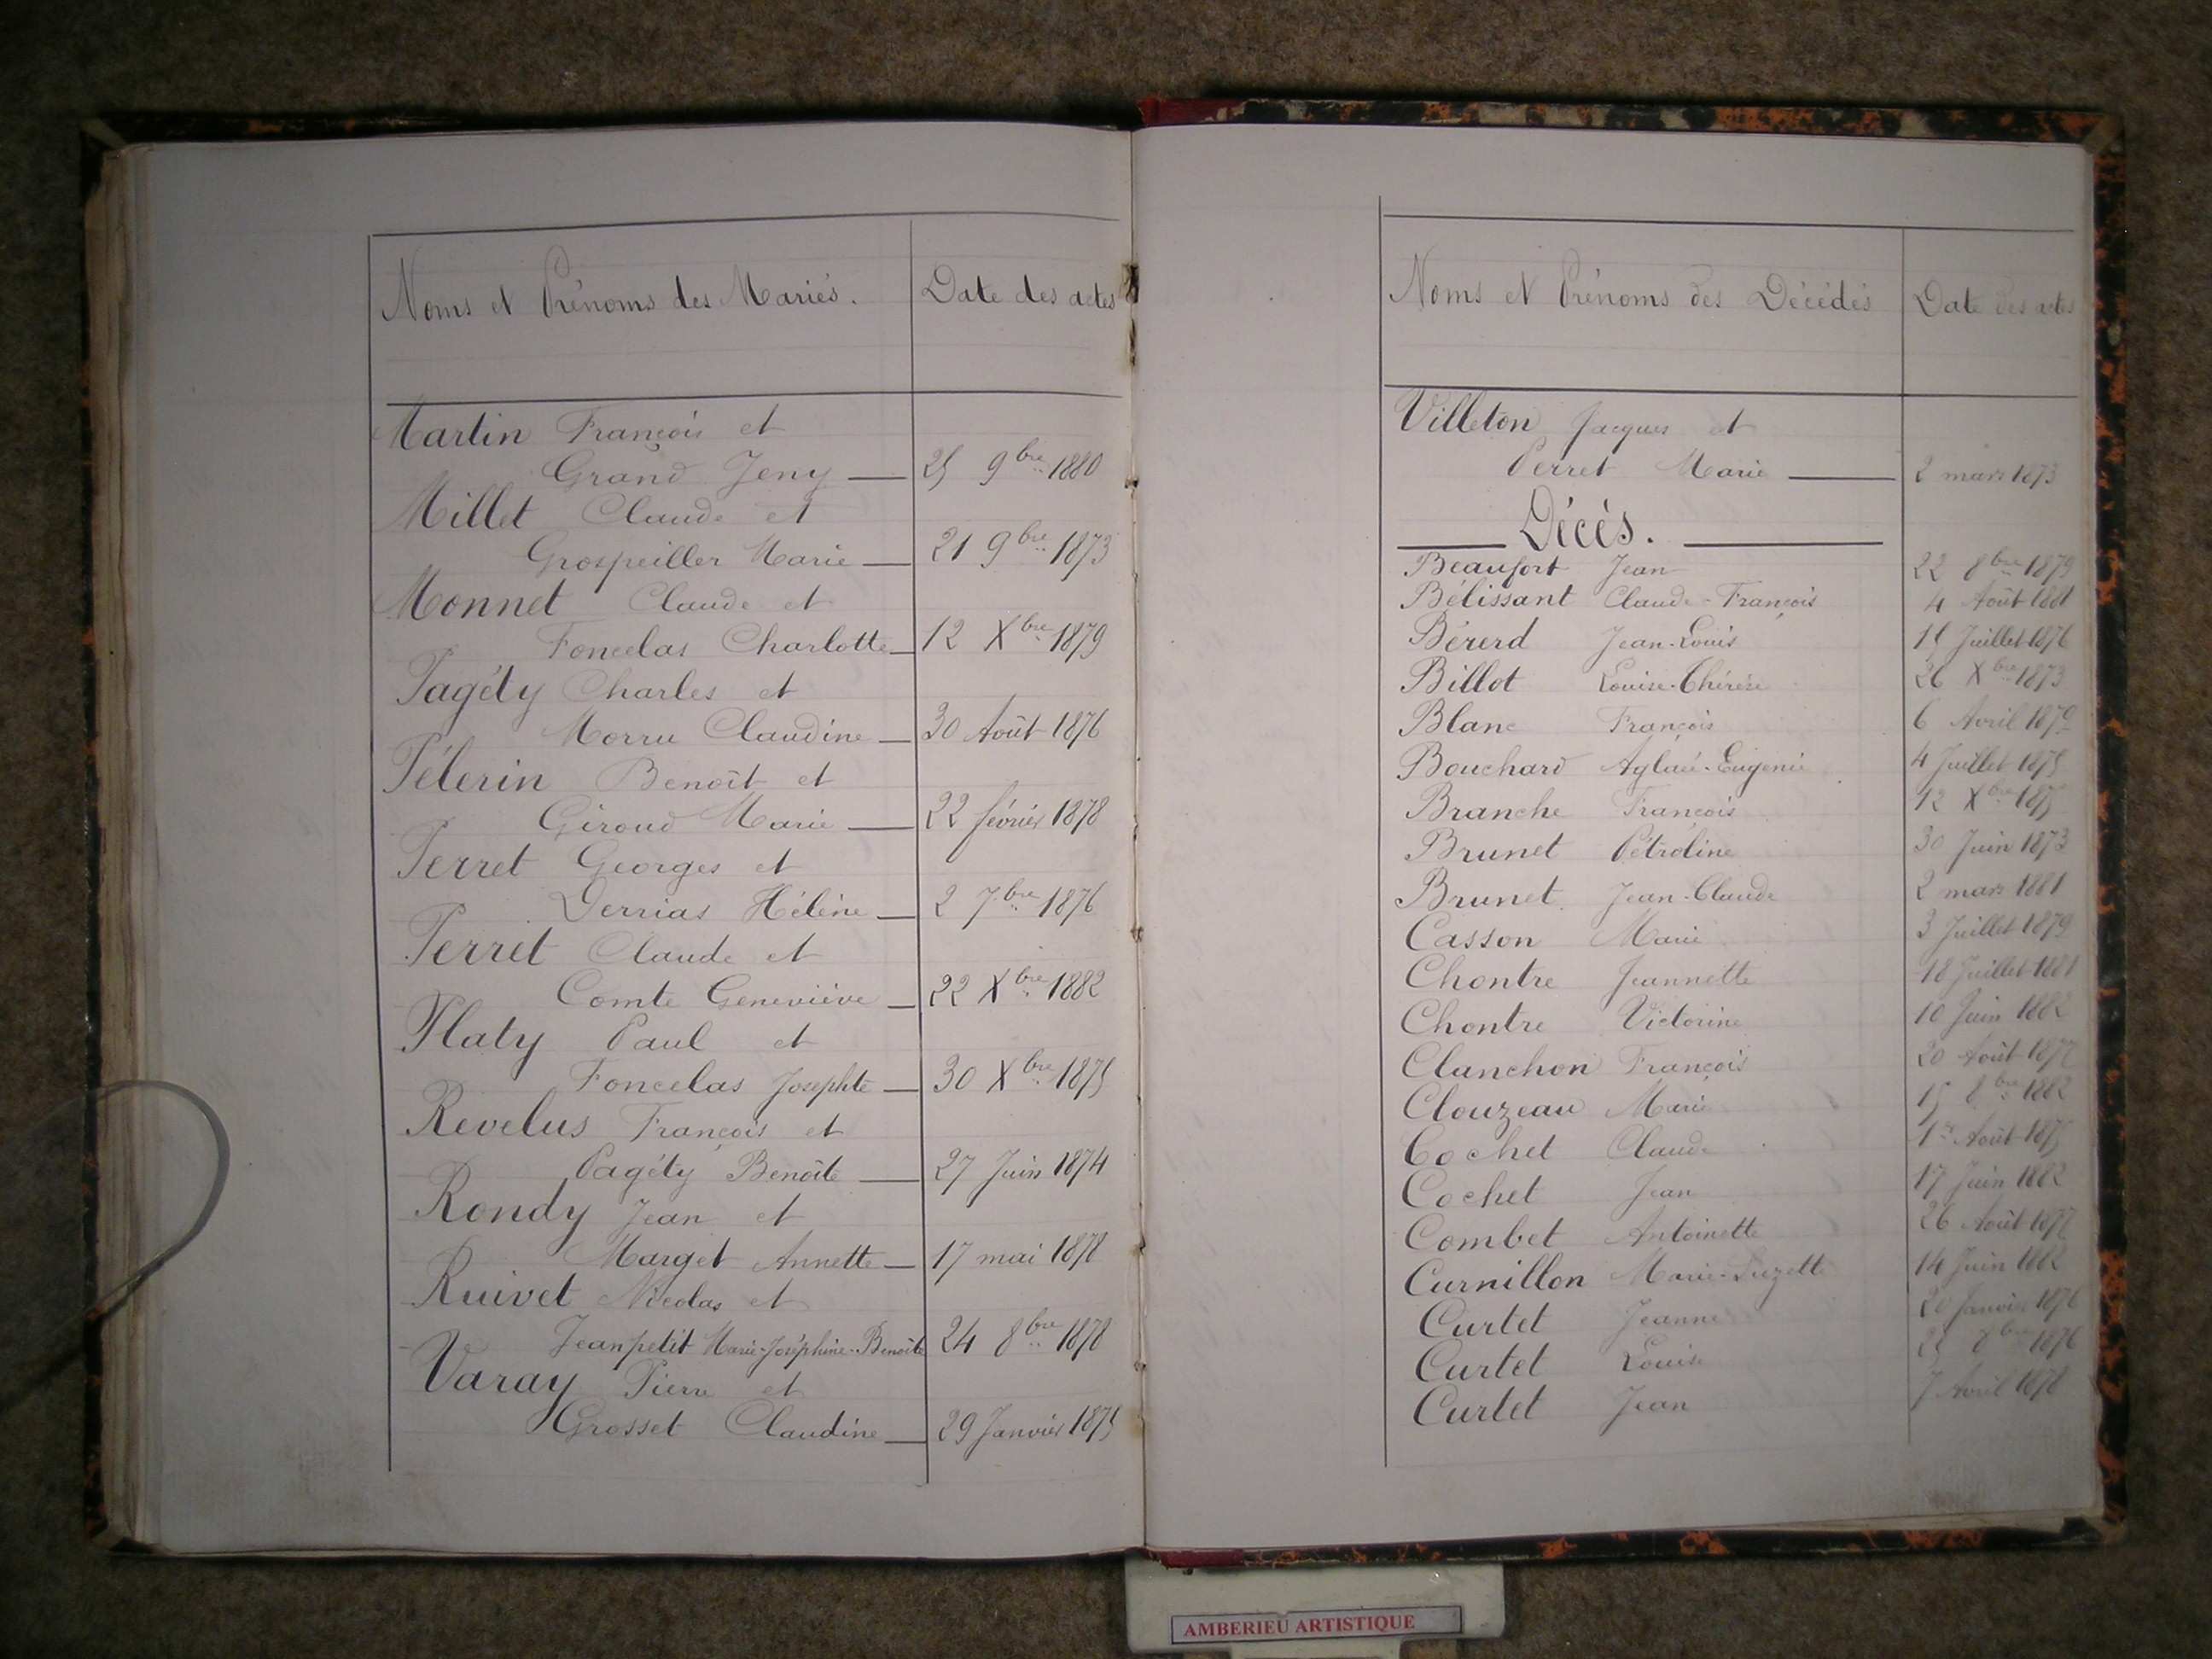 Noms et Prénoms des Mariés.
Date des actes
Martin François et
Grand Jeny — 25 9bre 1880
Millet Claude et
Grospeiller Marie — 21 9bre 1873
Monnet Claude et
Foncelas Charlotte — 12 Xbre 1879
Pagéty Charles et
Morru Claudine — 30 Août 1876
Pélerin Benoît et
Giroud Marie — 22 février 1878
Perret Georges et
Derrias Hélène — 2 7bre 1876
Perret Claude et
Comte Geneviève — 22 Xbre 1882
Platy Paul et
Foncelas Josephte — 30 Xbre 1875
Revelus François et
Pagéty Benoîte — 27 Juin 1874
Rondy Jean et
Marget Annette — 17 mai 1878
Ruivet Nicolas et
Jeanpetit Marie-Joséphine-Benoîte 24 8bre 1878
Varay Pierre et
Grosset Claudine — 29 Janvier 1875
Noms et Prénoms des Décédés
Date des actes
Villeton Jacques et
Perret Marie — 2 mars 1873
Décès.
Beaufort Jean 22 8bre 1879
Bélissant Claude-François 4 Août 1881
Bérerd Jean-Louis 15 Juillet 1876
Billot Louise-Thérèse 26 Xbre 1873
Blanc François 6 Avril 1879
Bouchard Aglaé-Eugénie 4 Juillet 1875
Branche François 12 Xbre 1875
Brunet Pétroline 30 Juin 1873
Brunet Jean-Claude 2 mars 1881
Casson Marie 3 Juillet 1879
Chontre Jeannette 18 Juillet 1881
Chontre Victorine 10 Juin 1882
Clanchon François 20 Août 1877
Clouzeau Marie 15 8bre 1882
Cochet Claude 1er Août 1875
Cochet Jean 17 Juin 1882
Combet Antoinette 26 Août 1877
Curnillon Marie-Suzette 14 Juin 1882
Curtet Jeanne 20 Janvier 1876
Curtet Louise 8bre 1876
Curtet Jean 7 Avril 1878
AMBERIEU ARTISTIQUE